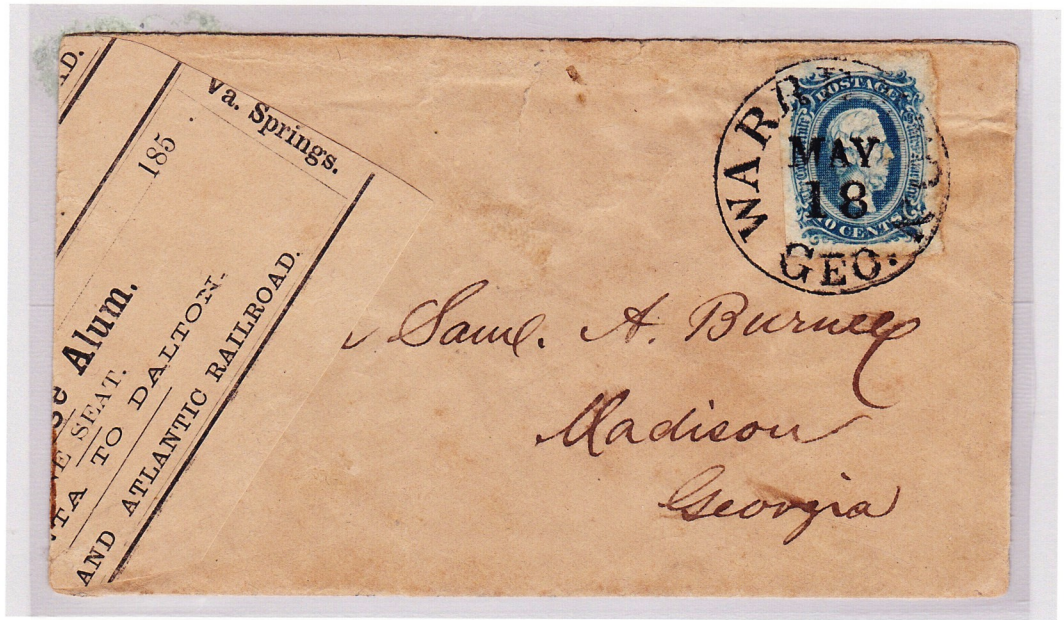 AD.
Va. Springs.
185
Alum.
SEAT.
TA TO DALTON.
AND ATLANTIC RAILROAD.
POSTAGE
CENTS
WARR
MAY
18
GEO.
Saml. A. Burney
Madison
Georgia